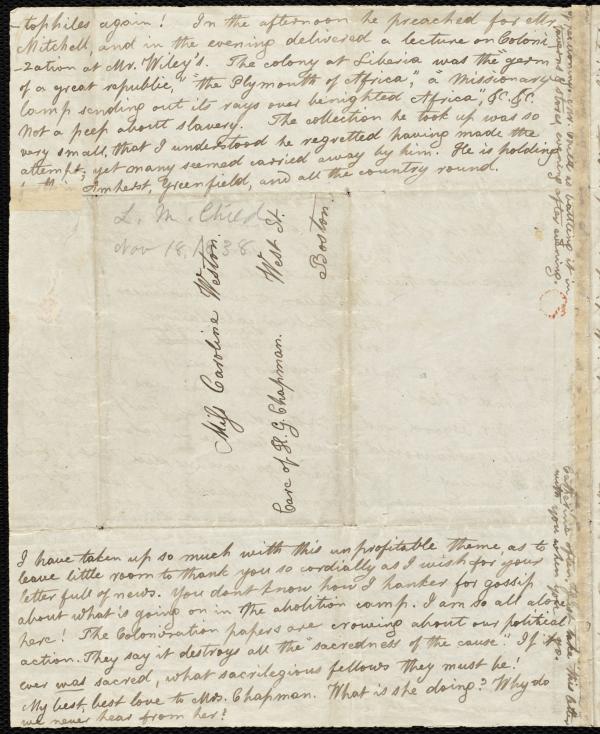 -tophiles again! In the afternoon he preached for Mr.
Mitchell, and in the evening delivered a lecture on Coloni
-zation at Mr. Wiley's. The colony at Liberia was the "germ
of a great republic," "the Plymouth of Africa," "a Missionary
lamp sending out its rays over benighted Africa", &c. &c.
Not a peep about slavery. The collection he took up was so
very small, that I understood he regretted having made the
attempt; yet many seemed carried away by him. He is holding
Amherst, Greenfield, and all the country round.
L. M. Child
Nov 18, 1838.
Miss Caroline Weston.
Care of H. G. Chapman.
West St.
Boston.
I have taken up so much with this unprofitable theme, as to
leave little room to thank you so cordially as I wish for your
letter full of news. You dont know how I hanker for gossip
about what's going on in the abolition camp. I am so all alone
here! The Colonization papers are crowing about our political
action. They say it destroys all the "sacredness of the cause". If it
ever was sacred, what sacrilegious fellows they must be!
My best, best love to Mrs. Chapman. What is she doing? Why do
we never hear from her?
is battling it in
stores evening after evening.
take this letter
with you when you go.